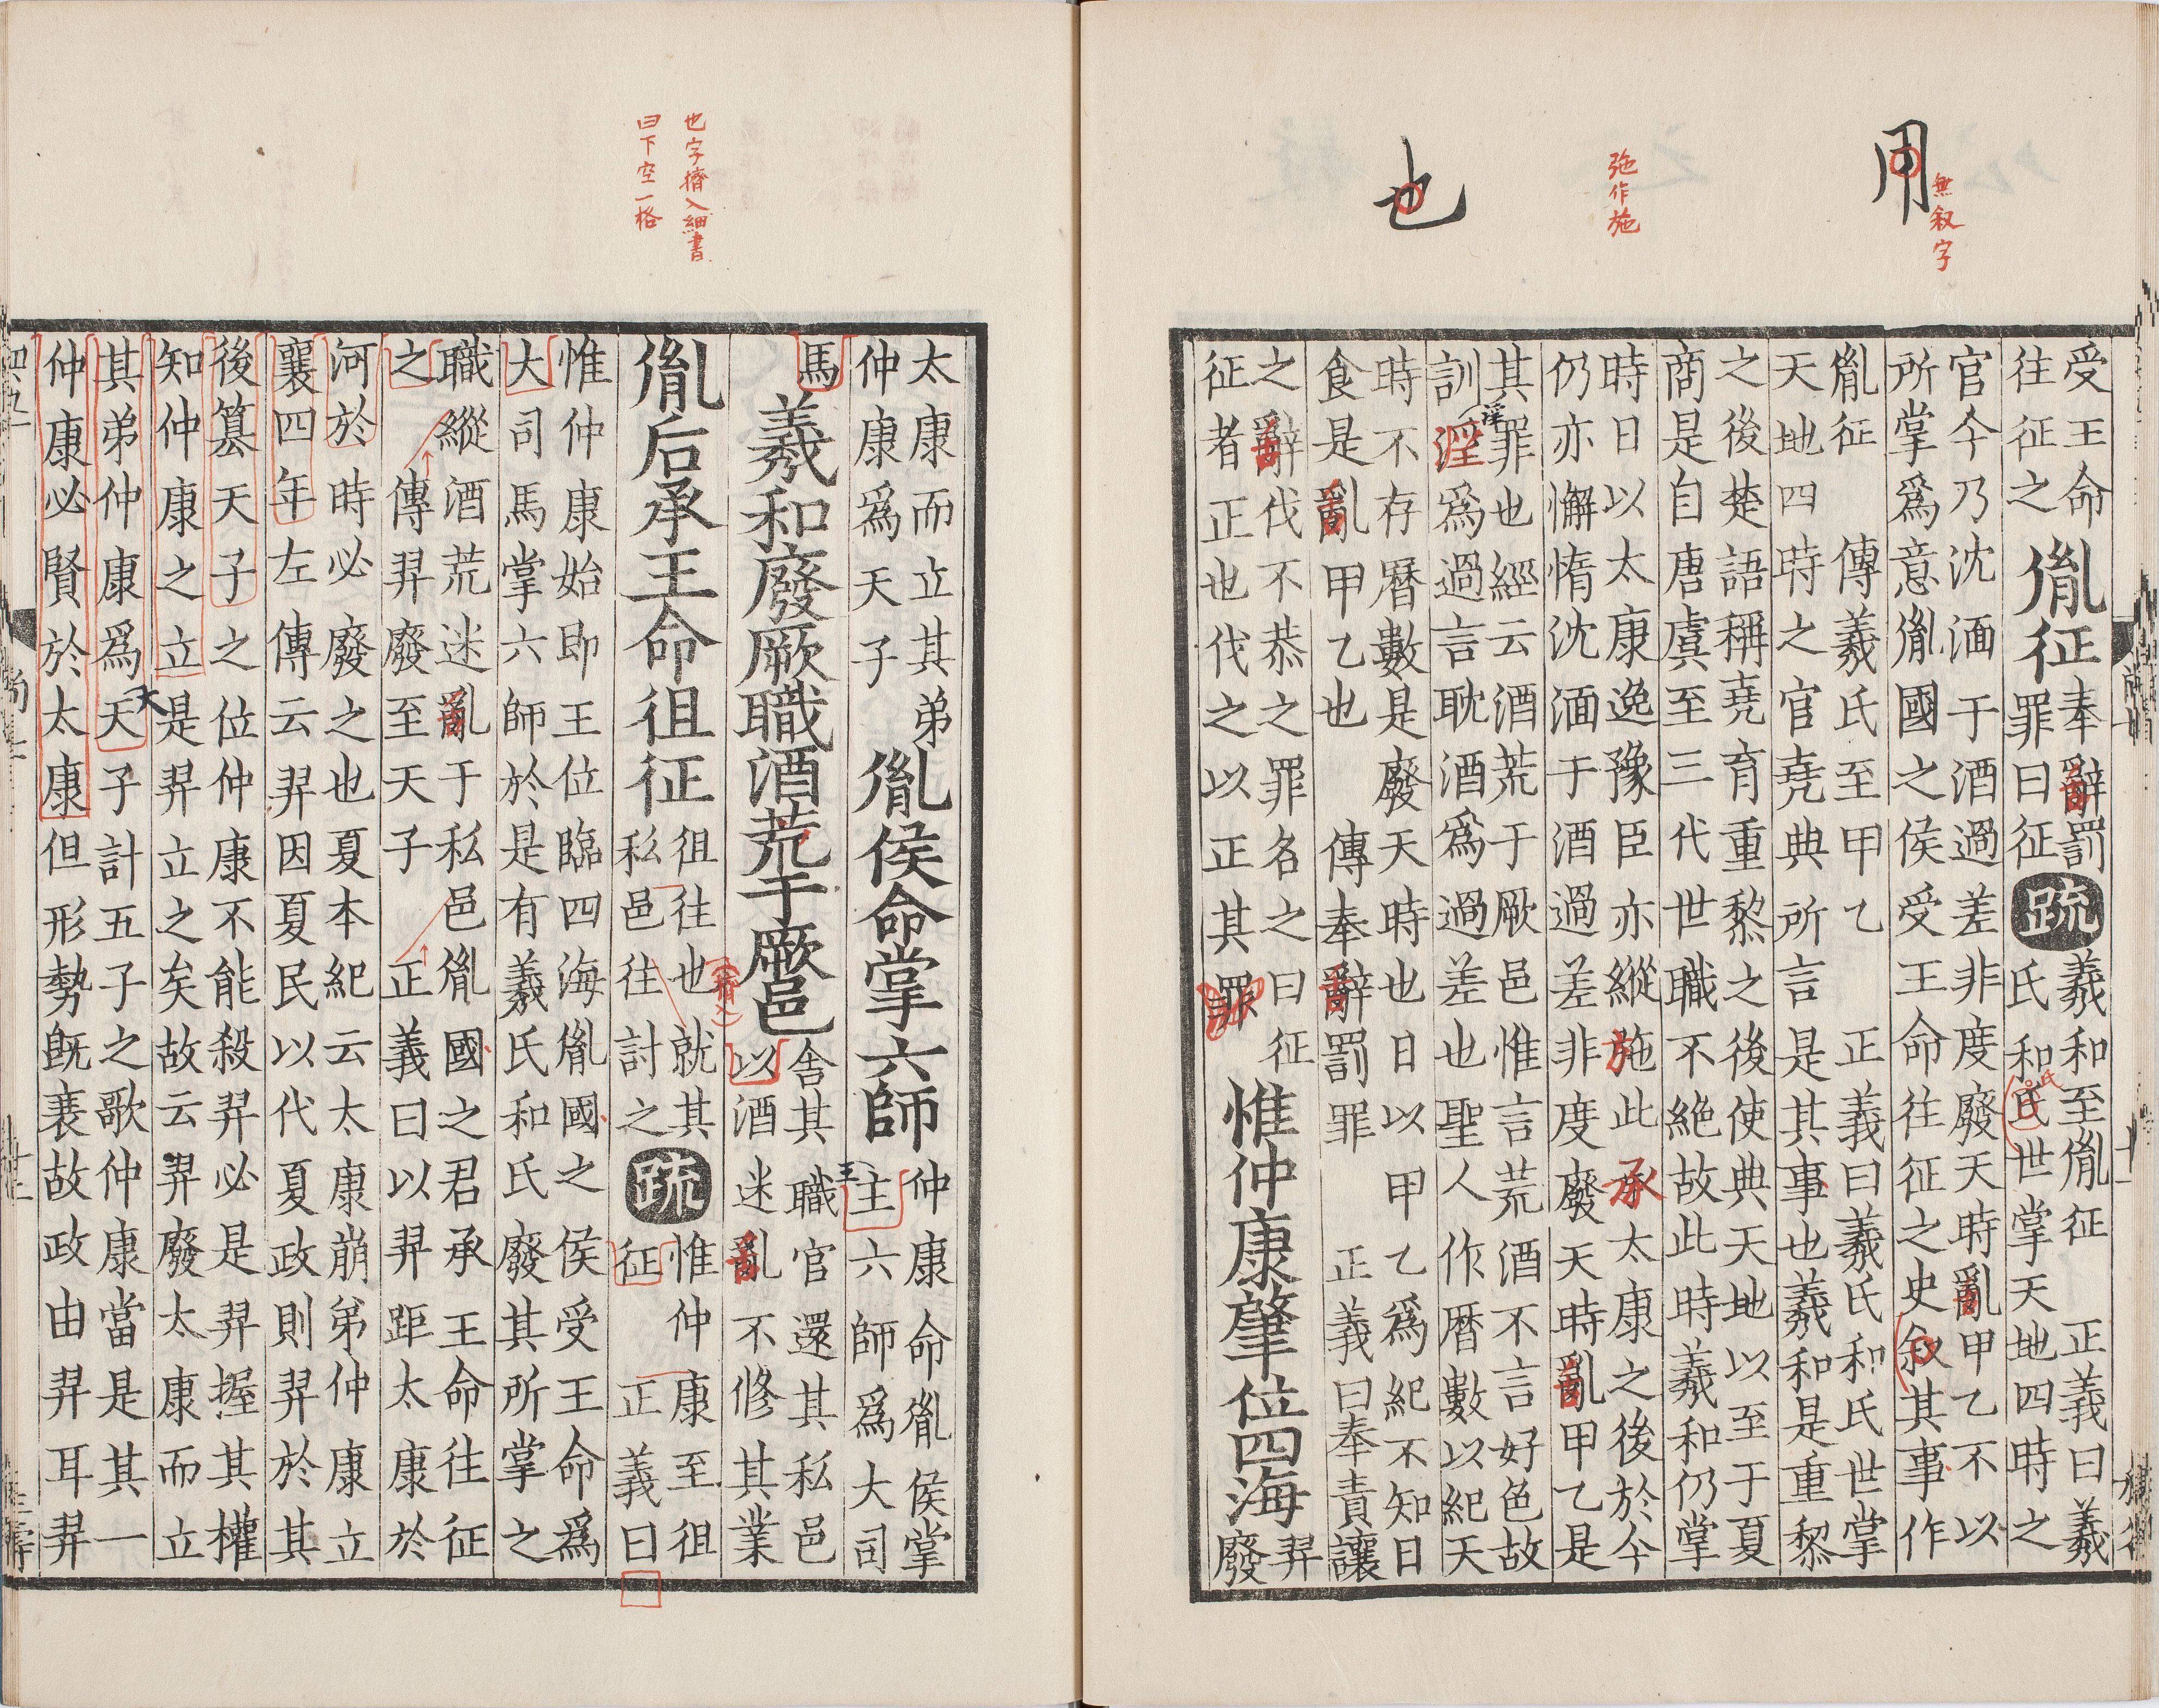 用
無叙字
弛作施
也
受王命
往征之
胤征
奉辭罰
罪曰征
疏
羲和至胤征　正義曰羲
氏和氏世掌天地四時之
官今乃沈湎于酒過差非度廢天時亂甲乙不以
所掌爲意胤國之侯受王命往征之史叙其事作
胤征　傳羲氏至甲乙　正義曰羲氏和氏世掌
天地四時之官堯典所言是其事也羲和是重黎
之後楚語稱堯育重黎之後使典天地以至于夏
商是自唐虞至三代世職不絶故此時羲和仍掌
時日以太康逸豫臣亦縱施此承太康之後於今
仍亦懈惰沈湎于酒過差非度廢天時亂甲乙是
其罪也經云酒荒于厥邑惟言荒酒不言好色故
訓淫爲過言耽酒爲過差也聖人作曆數以紀天
時不存曆數是廢天時也日以甲乙爲紀不知日
食是亂甲乙也　傳奉辭罰罪　正義曰奉責讓
之辭伐不恭之罪名之曰征
征者正也伐之以正其罪
惟仲康肇位四海
羿
廢
也字擠入細書
曰下空一格
太康而立其弟
仲康爲天子
胤侯命掌六師
仲康命胤侯掌
主六師爲大司
馬
羲和廢厥職酒荒于厥邑
舍其職官還其私邑
以酒迷亂不修其業
胤后承王命徂征
徂往也就其
私邑往討之
疏
惟仲康至徂
征　正義曰
惟仲康始即王位臨四海胤國之侯受王命爲
大司馬掌六師於是有羲氏和氏廢其所掌之
職縱酒荒迷亂于私邑胤國之君承王命往征
之　傳羿廢至天子　正義曰以羿距太康於
河於時必廢之也夏本紀云太康崩弟仲康立
襄四年左傳云羿因夏民以代夏政則羿於其
後篡天子之位仲康不能殺羿必是羿握其權
知仲康之立是羿立之矣故云羿廢太康而立
其弟仲康爲天子計五子之歌仲康當是其一
仲康必賢於太康但形勢旣衰故政由羿耳羿